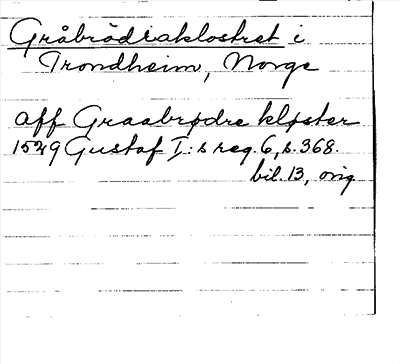 Gråbrödraklostret i
Trondheim, Norge
aff Graabrødre kløster
1529 Gustaf I:s reg. 6, s. 368.
bil. 13, orig.